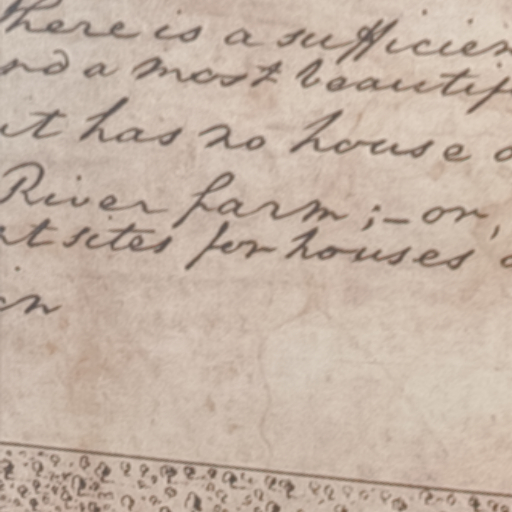 There is a sufficien
nd a most beautif
it has no house o
River farm ;— or,
nt sites for houses o
in